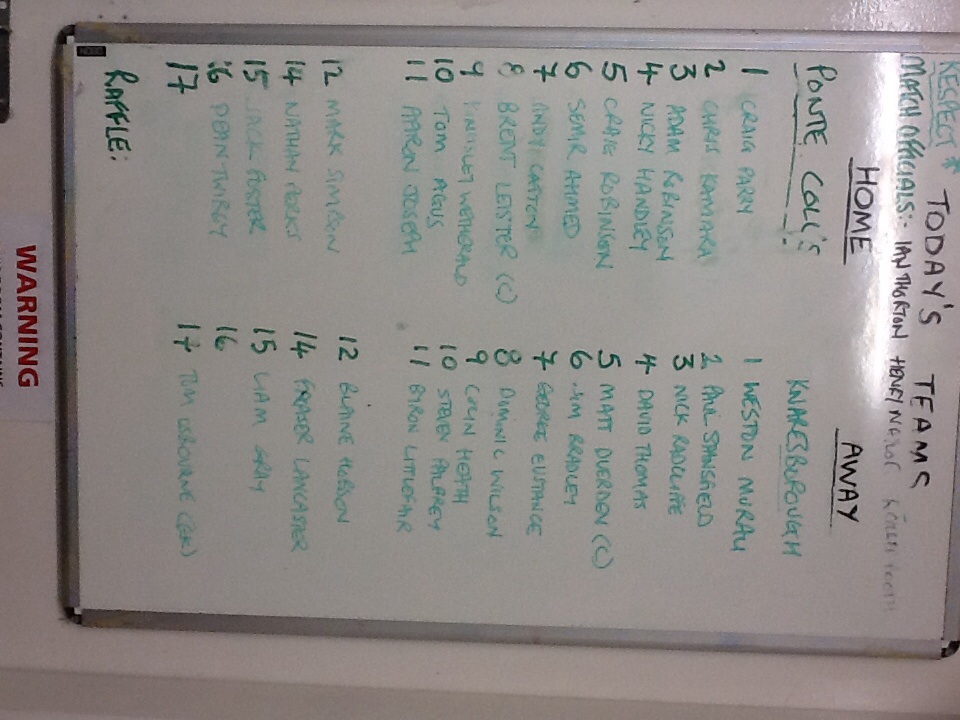 RESPECT * TODAY'S TEAMS
MATCH OFFICIALS:- IAN THORTON HENRY
HOME AWAY
PONTE COLL'S KNARESBOROUGH
1 CRAIG PARRY 1 WESTON MURAU
2 CHRIS KAMARA 2 PAUL STANSFIELD
3 ADAM ROBINSON 3 NICK RADCLIFFE
4 NICKY HANDLEY 4 DAVID THOMAS
5 CRAIG ROBINSON 5 MATT DUERDEN (C)
6 SEMIR AHMED 6 JIM BRADLEY
7 ANDY CATTON 7 GEORGE EUSTANCE
8 BRENT LEISTER (C) 8 DOMINIC WILSON
9 WETHERALD 9 COLIN HEATH
10 TOM AGUS 10 STEVEN PALFREY
11 AARON JOSEPH 11 BYRON LITTLEFAIR
12 MARK SIMPSON 12 BLAINE HOBSON
14 NATHAN PERKS 14 FRASER LANCASTER
15 JACK FOSTER 15 LIAM GRAY
16 DEAN TWIBEY 16
17 17 TOM OSBOURNE (GK)
RAFFLE:
WARNING